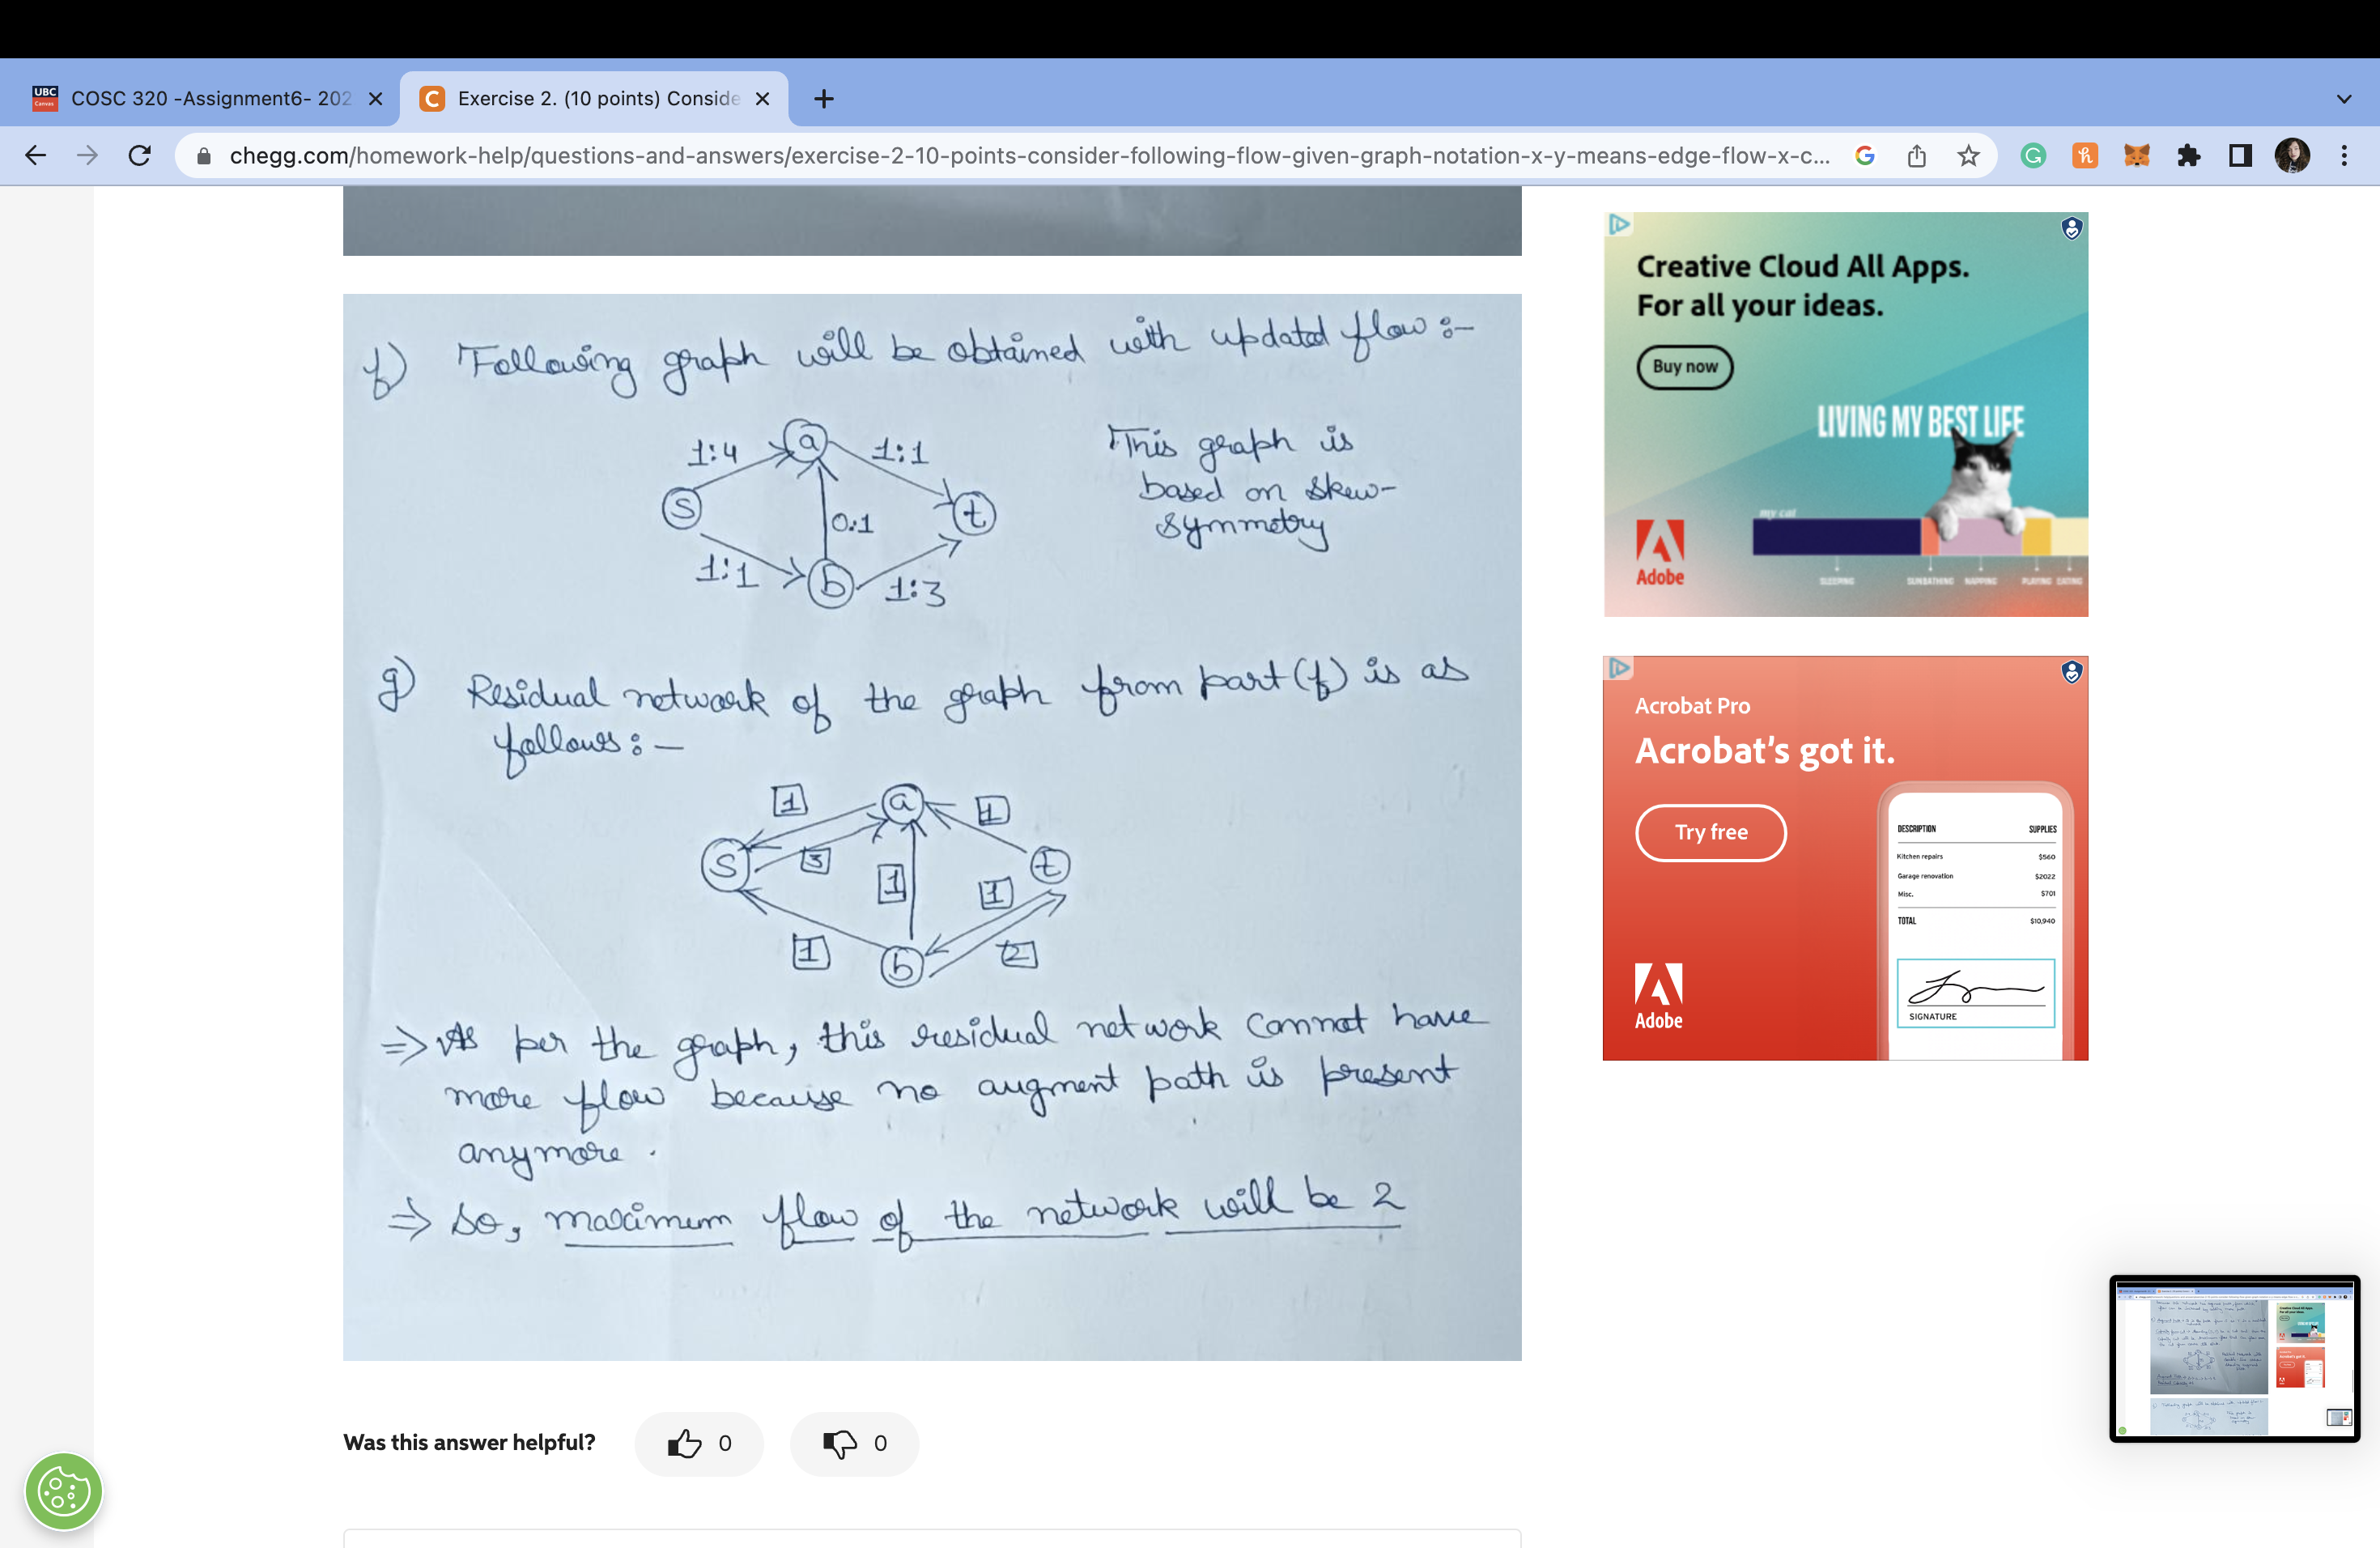 COSC 320 -Assignment6- 202
Exercise 2. (10 points) Conside
chegg.com/homework-help/questions-and-answers/exercise-2-10-points-consider-following-flow-given-graph-notation-x-y-means-edge-flow-x-c...
f) Following graph will be obtained with updated flow :-
1:4
a
1:1
S
0:1
t
1:1
b
1:3
This graph is
based on skew-
symmetry
g) Residual network of the graph from part (f) is as
follows :-
1
a
1
S
3
1
t
1
1
b
2
⇒ As per the graph, this residual network cannot have
more flow because no augment path is present
anymore.
⇒ So, maximum flow of the network will be 2
Was this answer helpful?
0
0
Creative Cloud All Apps.
For all your ideas.
Buy now
LIVING MY BEST LIFE
my cat
SLEEPING SUNBATHING NAPPING PLAYING EATING
Adobe
Acrobat Pro
Acrobat's got it.
Try free
DESCRIPTION SUPPLIES
Kitchen repairs $560
Garage renovation $2022
Misc. $701
TOTAL $10,940
SIGNATURE
Adobe